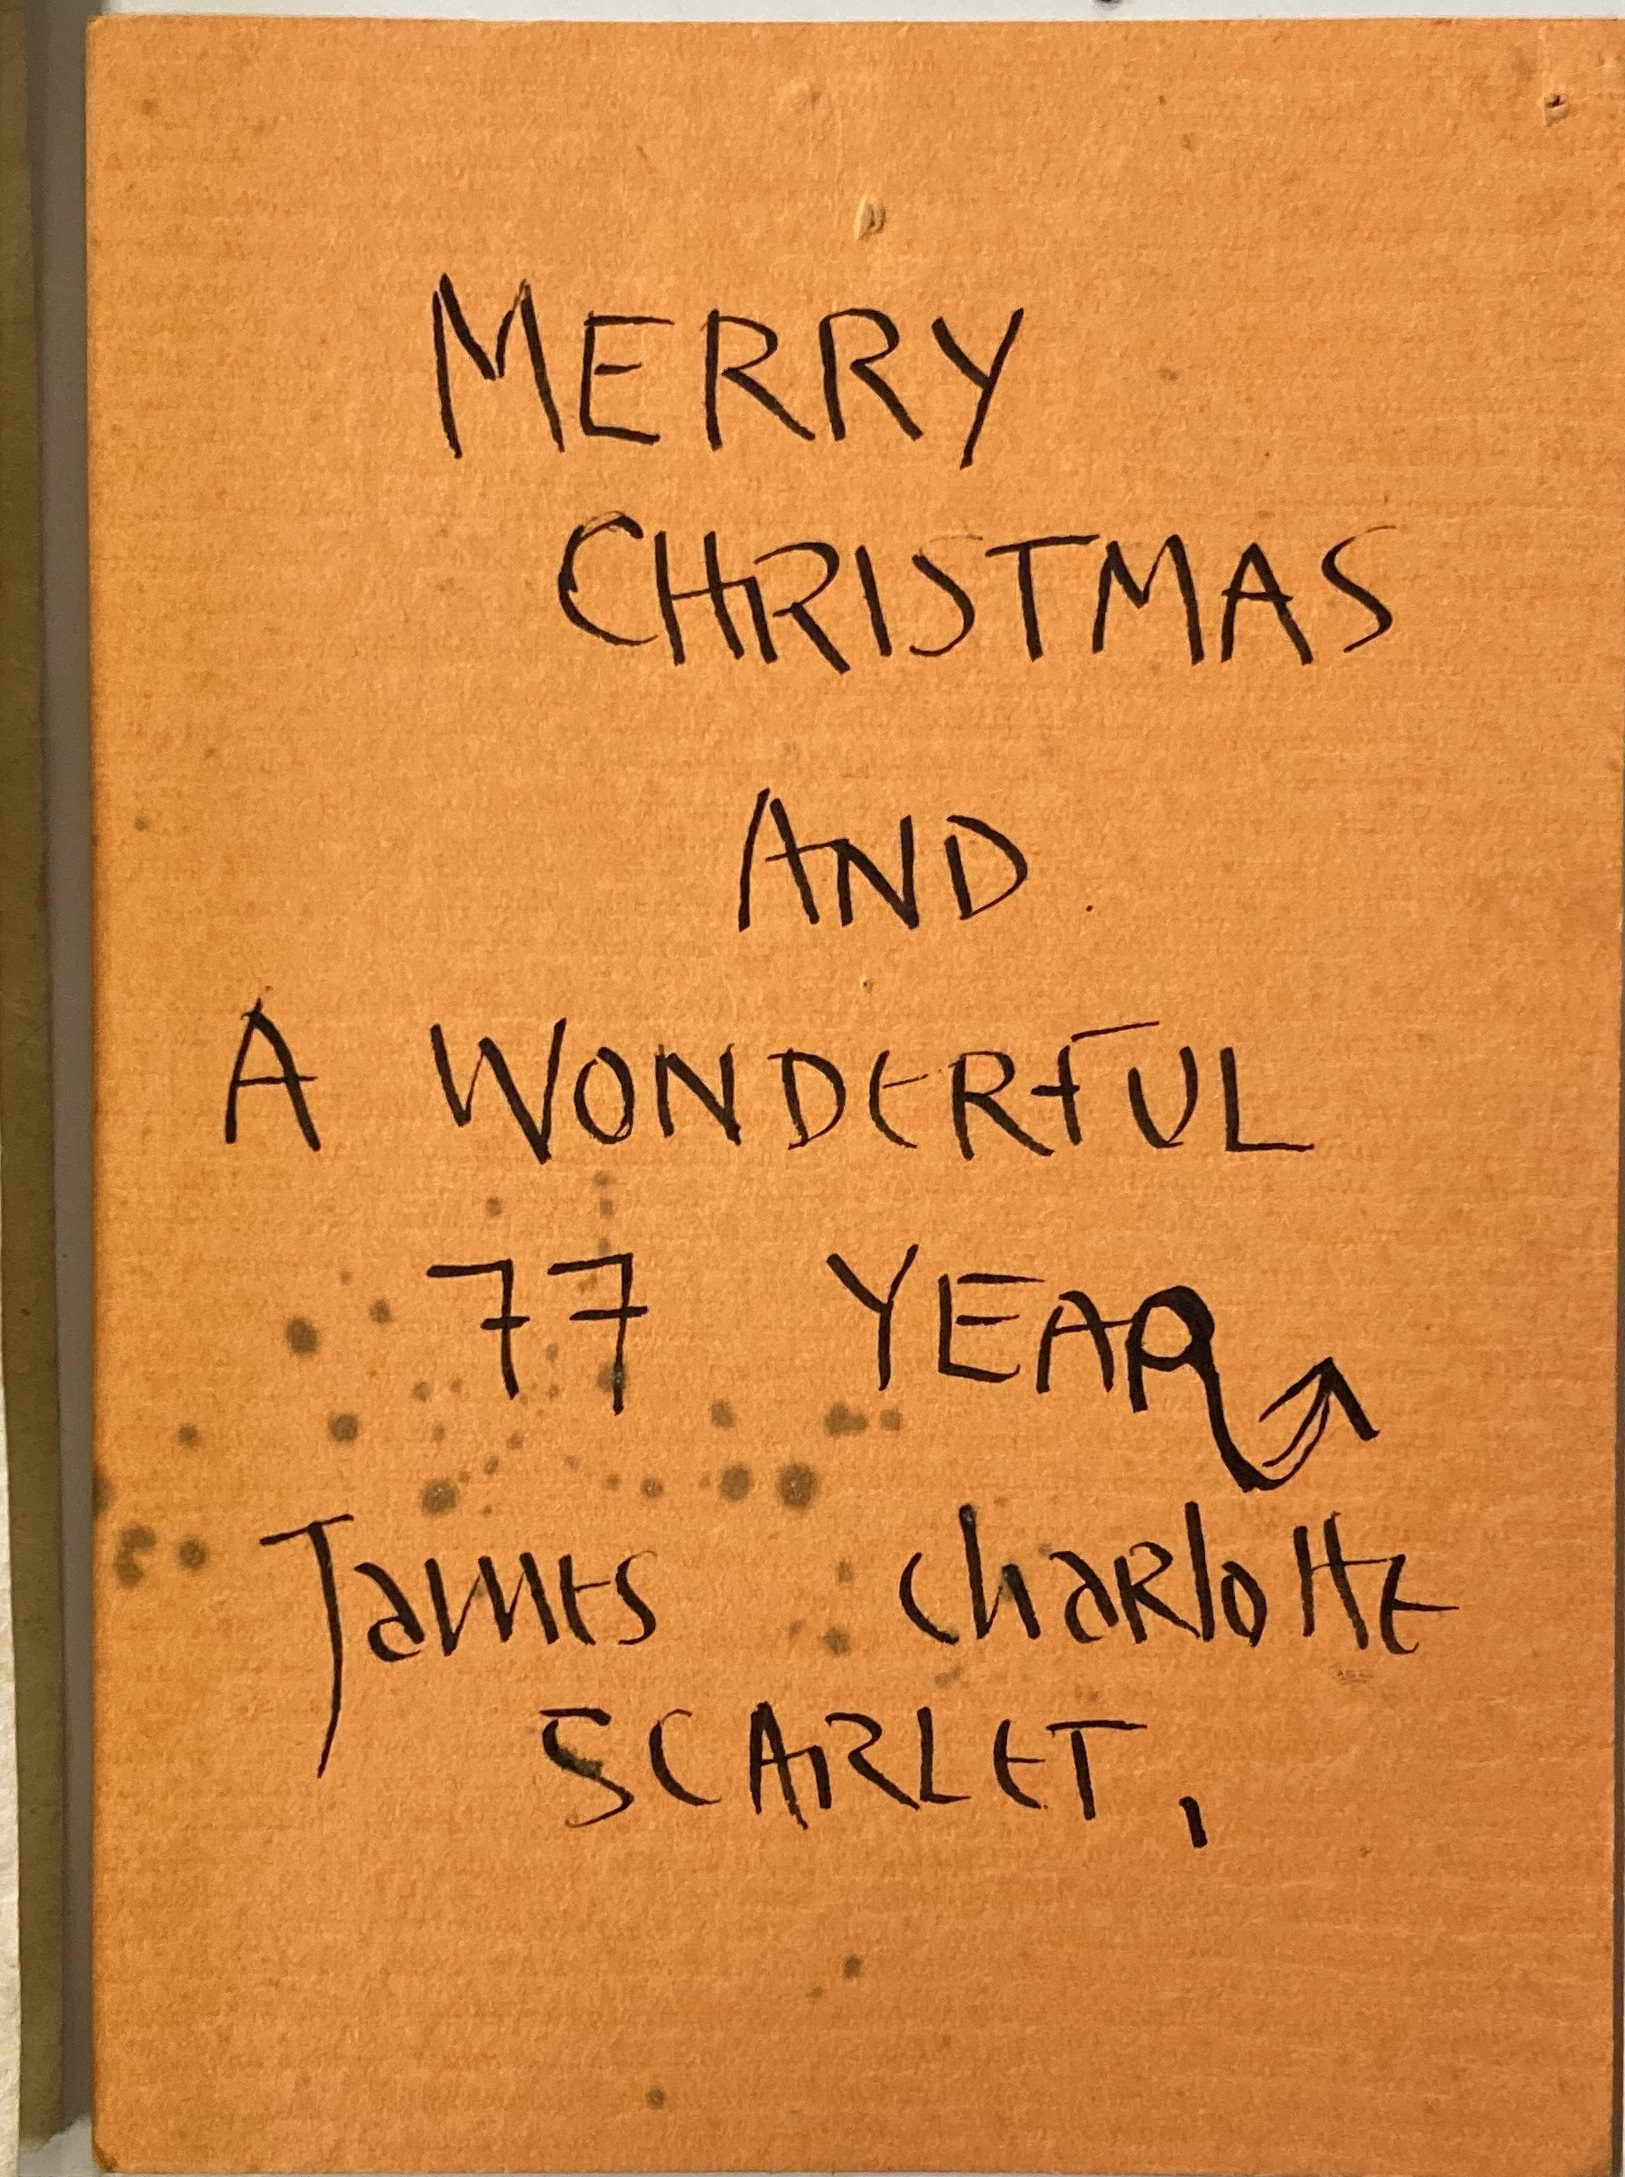 MERRY
CHRISTMAS
AND
A WONDERFUL
77 YEAR
James Charlotte
SCARLET.